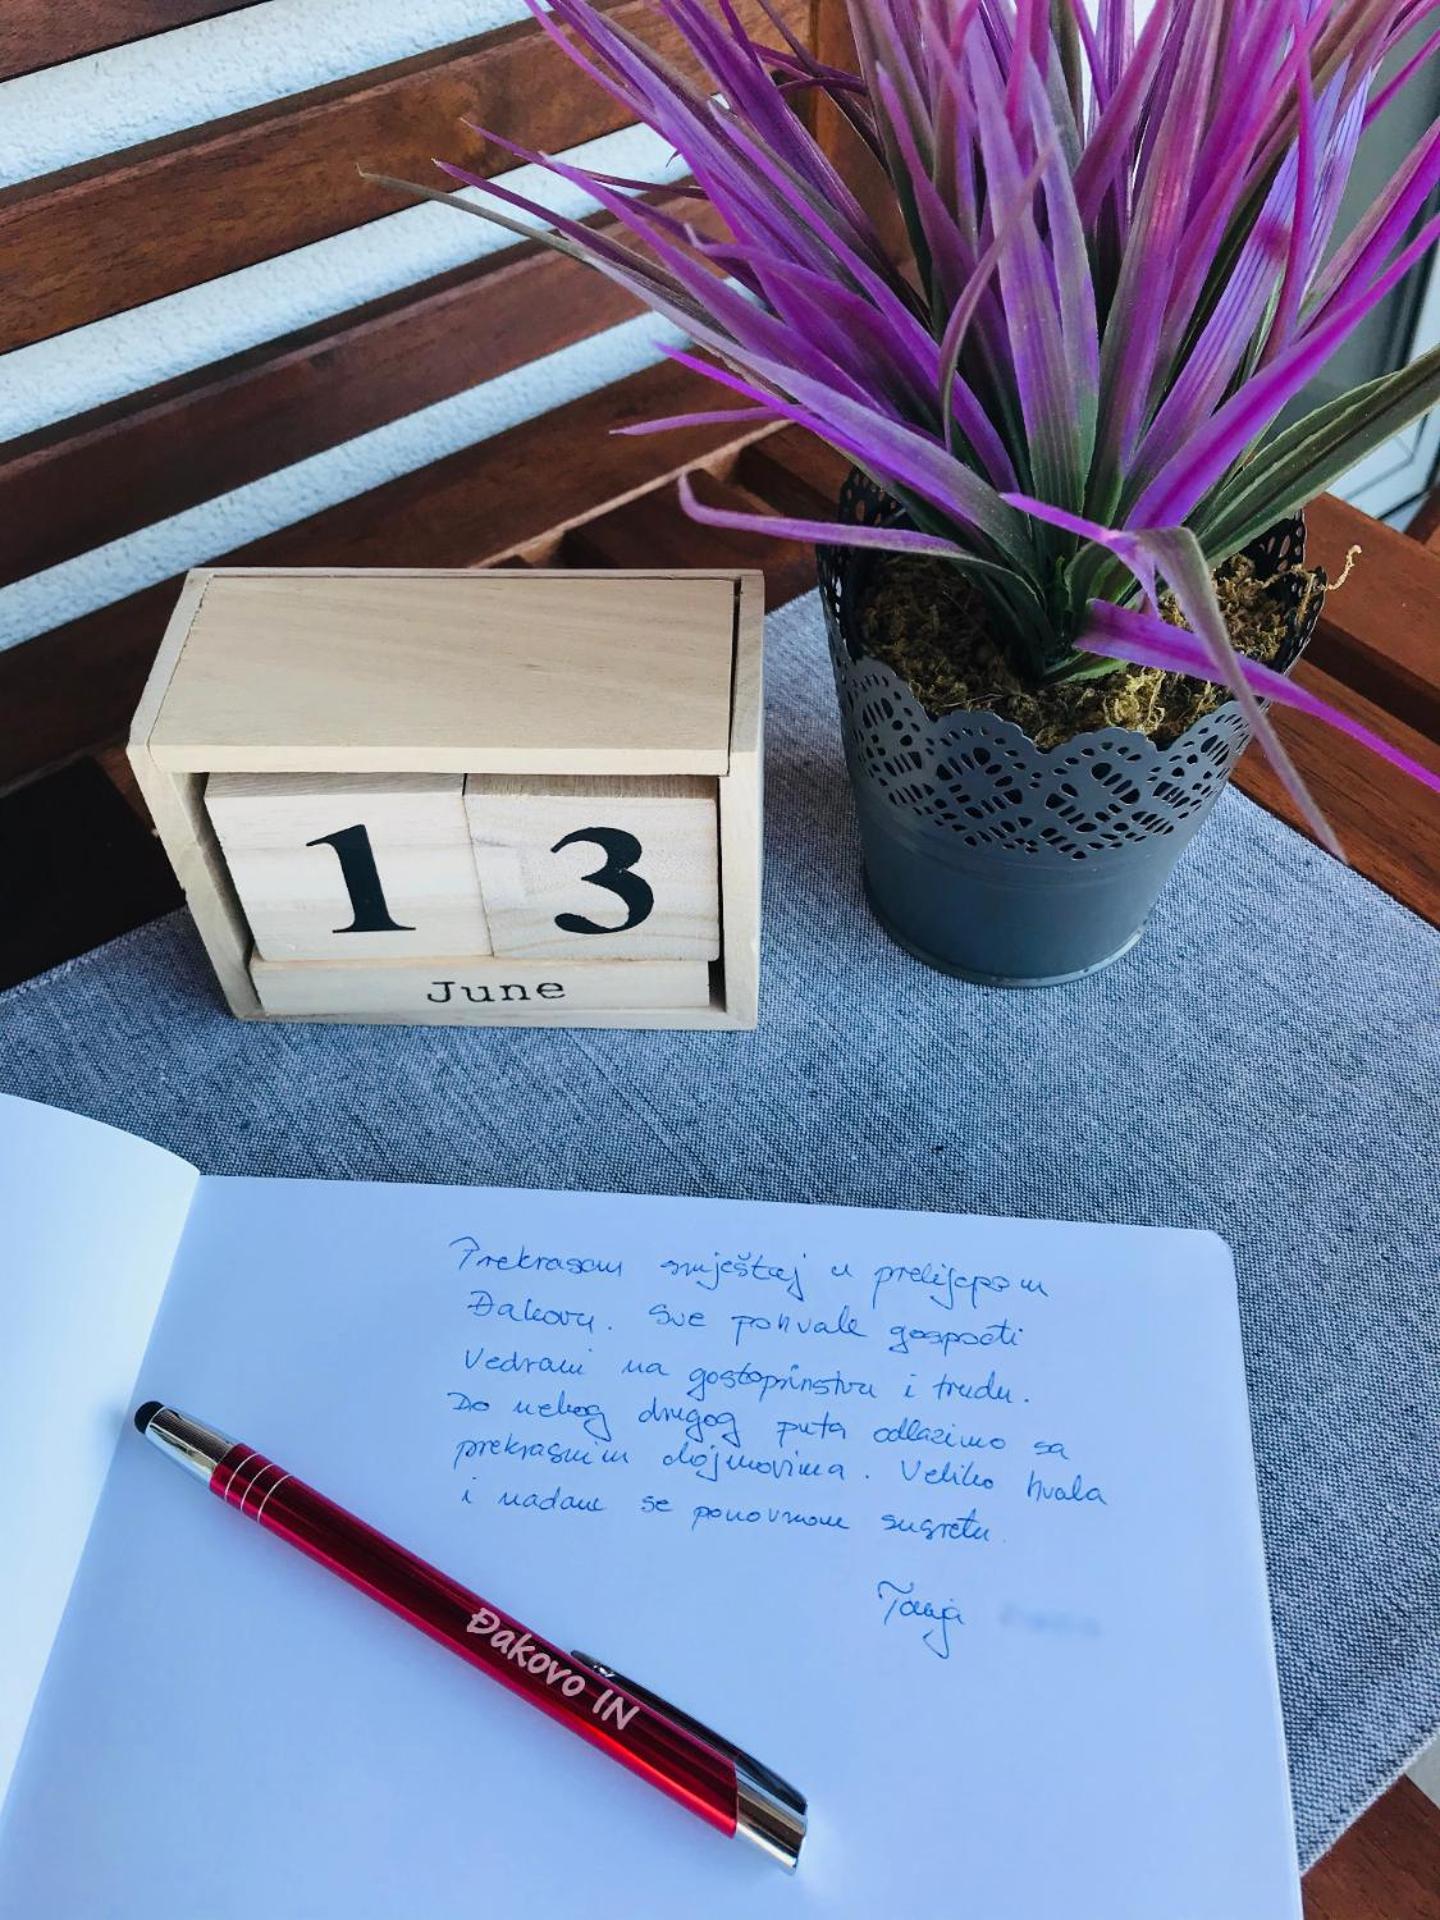 1 3
June
Prekrasan smještaj u prelijepom
Đakovu. Sve pohvale gospođi
Vedrani na gostoprimstvu i trudu.
Do nekog drugog puta odlazimo sa
prekrasnim dojmovima. Veliko hvala
i nadam se ponovnom susretu.
Tanja
Đakovo IN